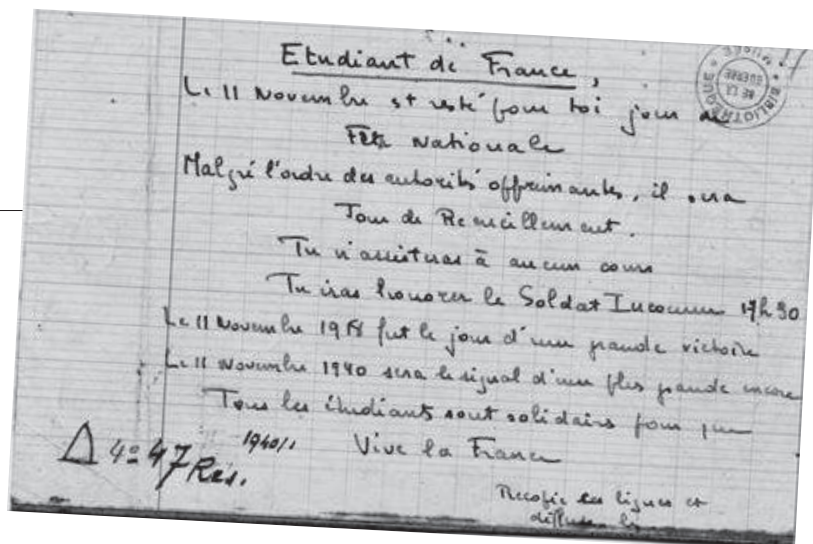 Etudiant de France,
Le 11 Novembre est resté pour toi jour de
Fête Nationale
Malgré l'ordre des autorités opprimantes, il sera
Jour de Recueillement.
Tu n'assisteras à aucun cours
Tu iras honorer le Soldat Inconnu 17h30
Le 11 Novembre 1918 fut le jour d'une grande victoire
Le 11 Novembre 1940 sera le signal d'une plus grande encore
Tous les étudiants sont solidaires pour que
Vive la France
Recopie ces lignes et
diffuse les
Δ 4º 47 Rés.
1940/1
BIBLIOTHEQUE
DE LA
GUERRE